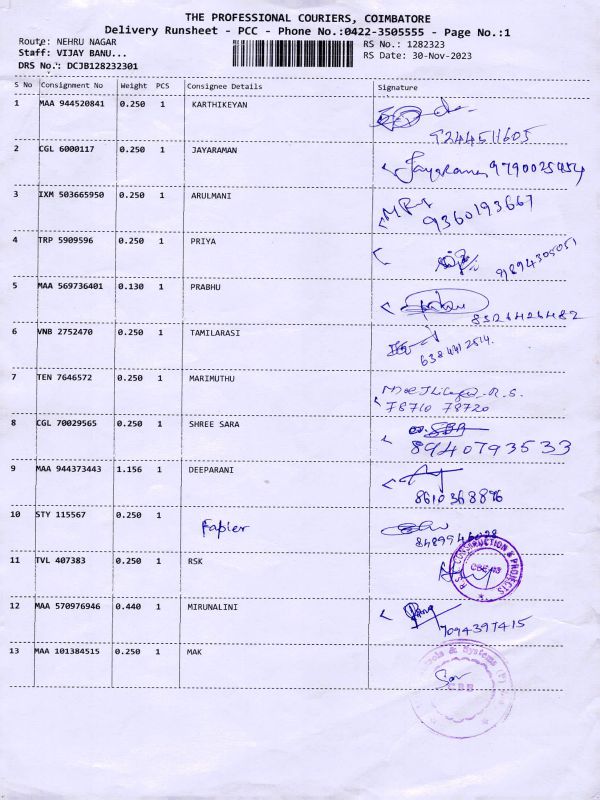 THE PROFESSIONAL COURIERS, COIMBATORE
Delivery Runsheet - PCC - Phone No.:0422-3505555 - Page No.:1
Route: NEHRU NAGAR
RS No.: 1282323
Staff: VIJAY BANU...
RS Date: 30-Nov-2023
DRS No.: DCJB128232301
S No Consignment No Weight PCS Consignee Details Signature
1 MAA 944520841 0.250 1 KARTHIKEYAN
9244511605
2 CGL 6000117 0.250 1 JAYARAMAN
Jayaraman 9790025454
3 IXM 503665950 0.250 1 ARULMANI
9360193667
4 TRP 5909596 0.250 1 PRIYA
9894305051
5 MAA 569736401 0.130 1 PRABHU
8326426482
6 VNB 2752470 0.250 1 TAMILARASI
6384412514.
7 TEN 7646572 0.250 1 MARIMUTHU
78710 78720
8 CGL 70029565 0.250 1 SHREE SARA
8940793533
9 MAA 944373443 1.156 1 DEEPARANI
8610368896
10 STY 115567 0.250 1
8489946028
11 TVL 407383 0.250 1 RSK
CONSTRUCTION & PROJECTS
12 MAA 570976946 0.440 1 MIRUNALINI
7094397415
13 MAA 101384515 0.250 1 MAK
& Systems
CBE